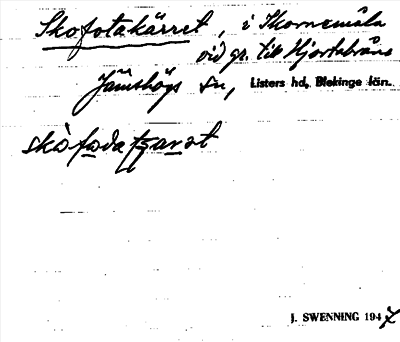 Skofotakärret, i Skornemåla
vid gr. till Hjortabråna
Jämshögs sn, Listers hd, Blekinge län.
skòfoda tʂarət
J. SWENNING 1947